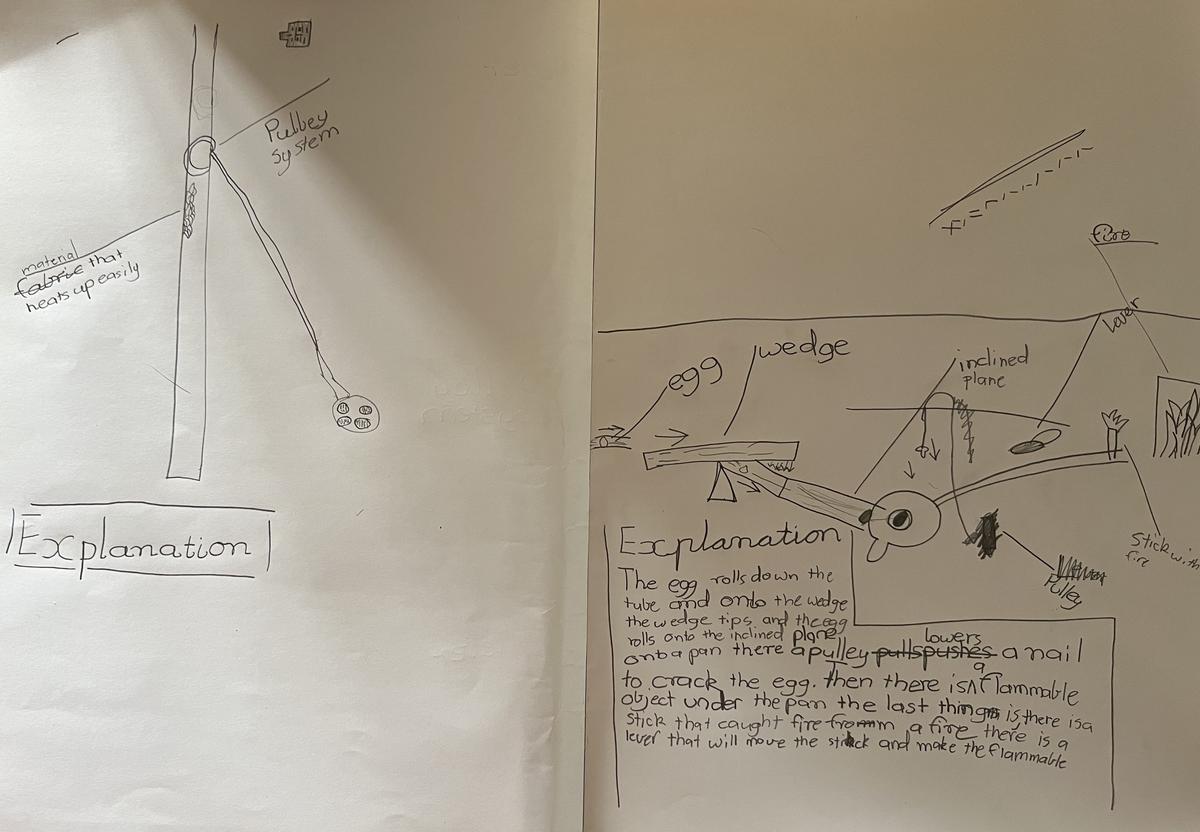 Pulley
system
material
fabric that
heats up easily
Explanation
fire
lever
egg
wedge
inclined
plane
Stick with
fire
Pulley
Explanation
The egg rolls down the
tube and onto the wedge
the wedge tips and the egg
rolls onto the inclined plane
onto a pan there a pulley pulls pushes lowers a nail
to crack the egg. then there is a flammable
object under the pan the last thing is, there is a
stick that caught fire from a fire there is a
lever that will move the stick and make the flammable